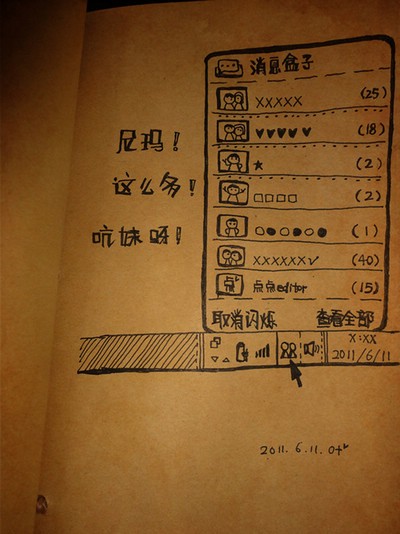 消息盒子
XXXXX (25)
♥♥♥♥♥ (18)
★ (2)
□□□□ (2)
○●○●○● (1)
XXXXXX√ (40)
点 点点editor (15)
取消闪烁 查看全部
尼玛！
这么多！
坑妹呀！
X:XX
2011/6/11
2011.6.11.